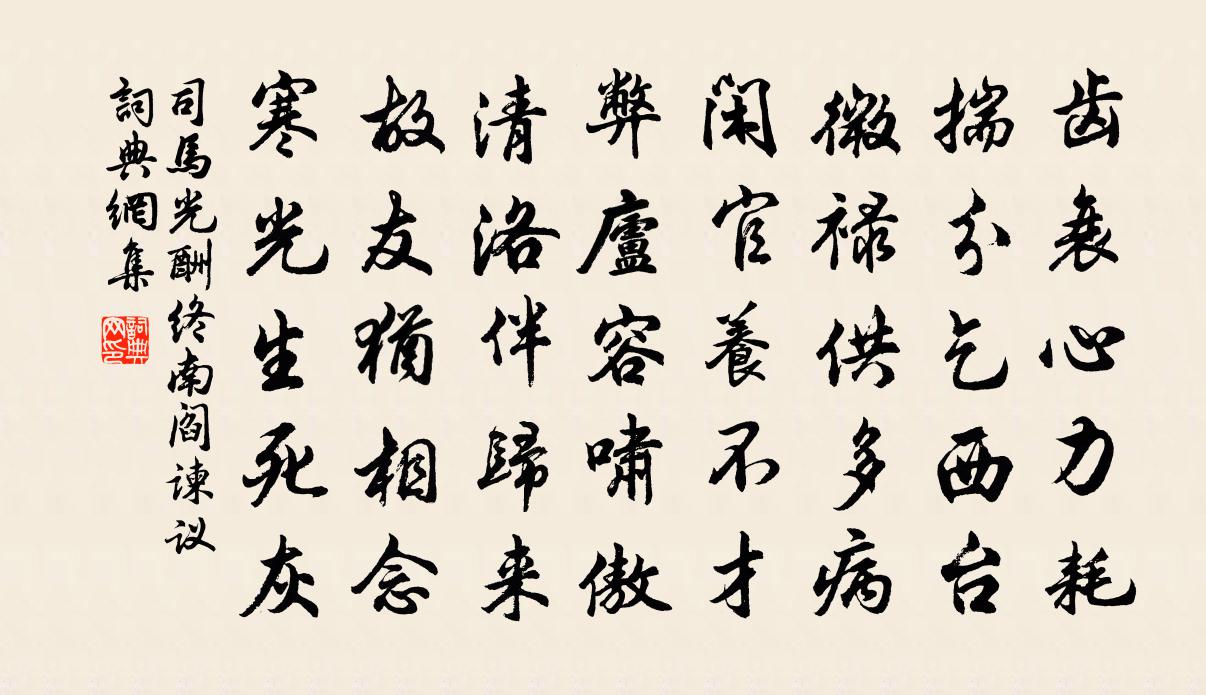 齿衰心力耗
揣分乞西台
微禄供多病
闲官養不才
弊廬容啸傲
清洛伴歸来
故友猶相念
寒光生死灰
司馬光酬终南阎谏议
詞典網集
詞典网印